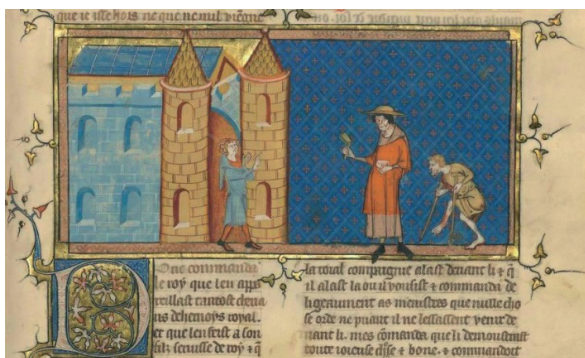 que il isse hors ne que ne nul viegne
Donc commanda
le roy que len appa
reillast tantost cheua
us de hernoys royal.
et que len feist a son
filz seruise de roy &
la roial compaignie alast deuant li &
il alast la ou il vousist & commanda di
ligeaument as menistres que nulle cho
se orde ne puant il ne lessassent venir de
uant li. mes commanda que li demoustrast
toute ioieuse chose & bone. & commanda